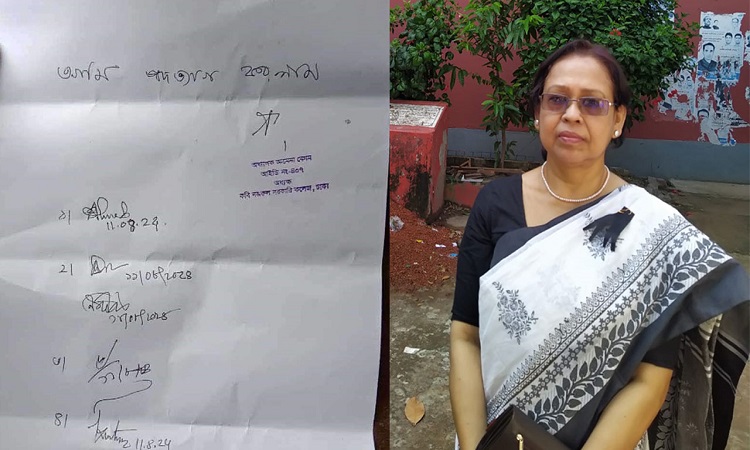 আমি পদত্যাগ করলাম
অধ্যাপক আমেনা বেগম
আইডি নং-৪০৭
অধ্যক্ষ
কবি নজরুল সরকারি কলেজ, ঢাকা
১) Ahmed
11.08.24
২) ১১/০৮/২০২৪
১১/০৮/২০২৪
৩)
৪)
11.8.24